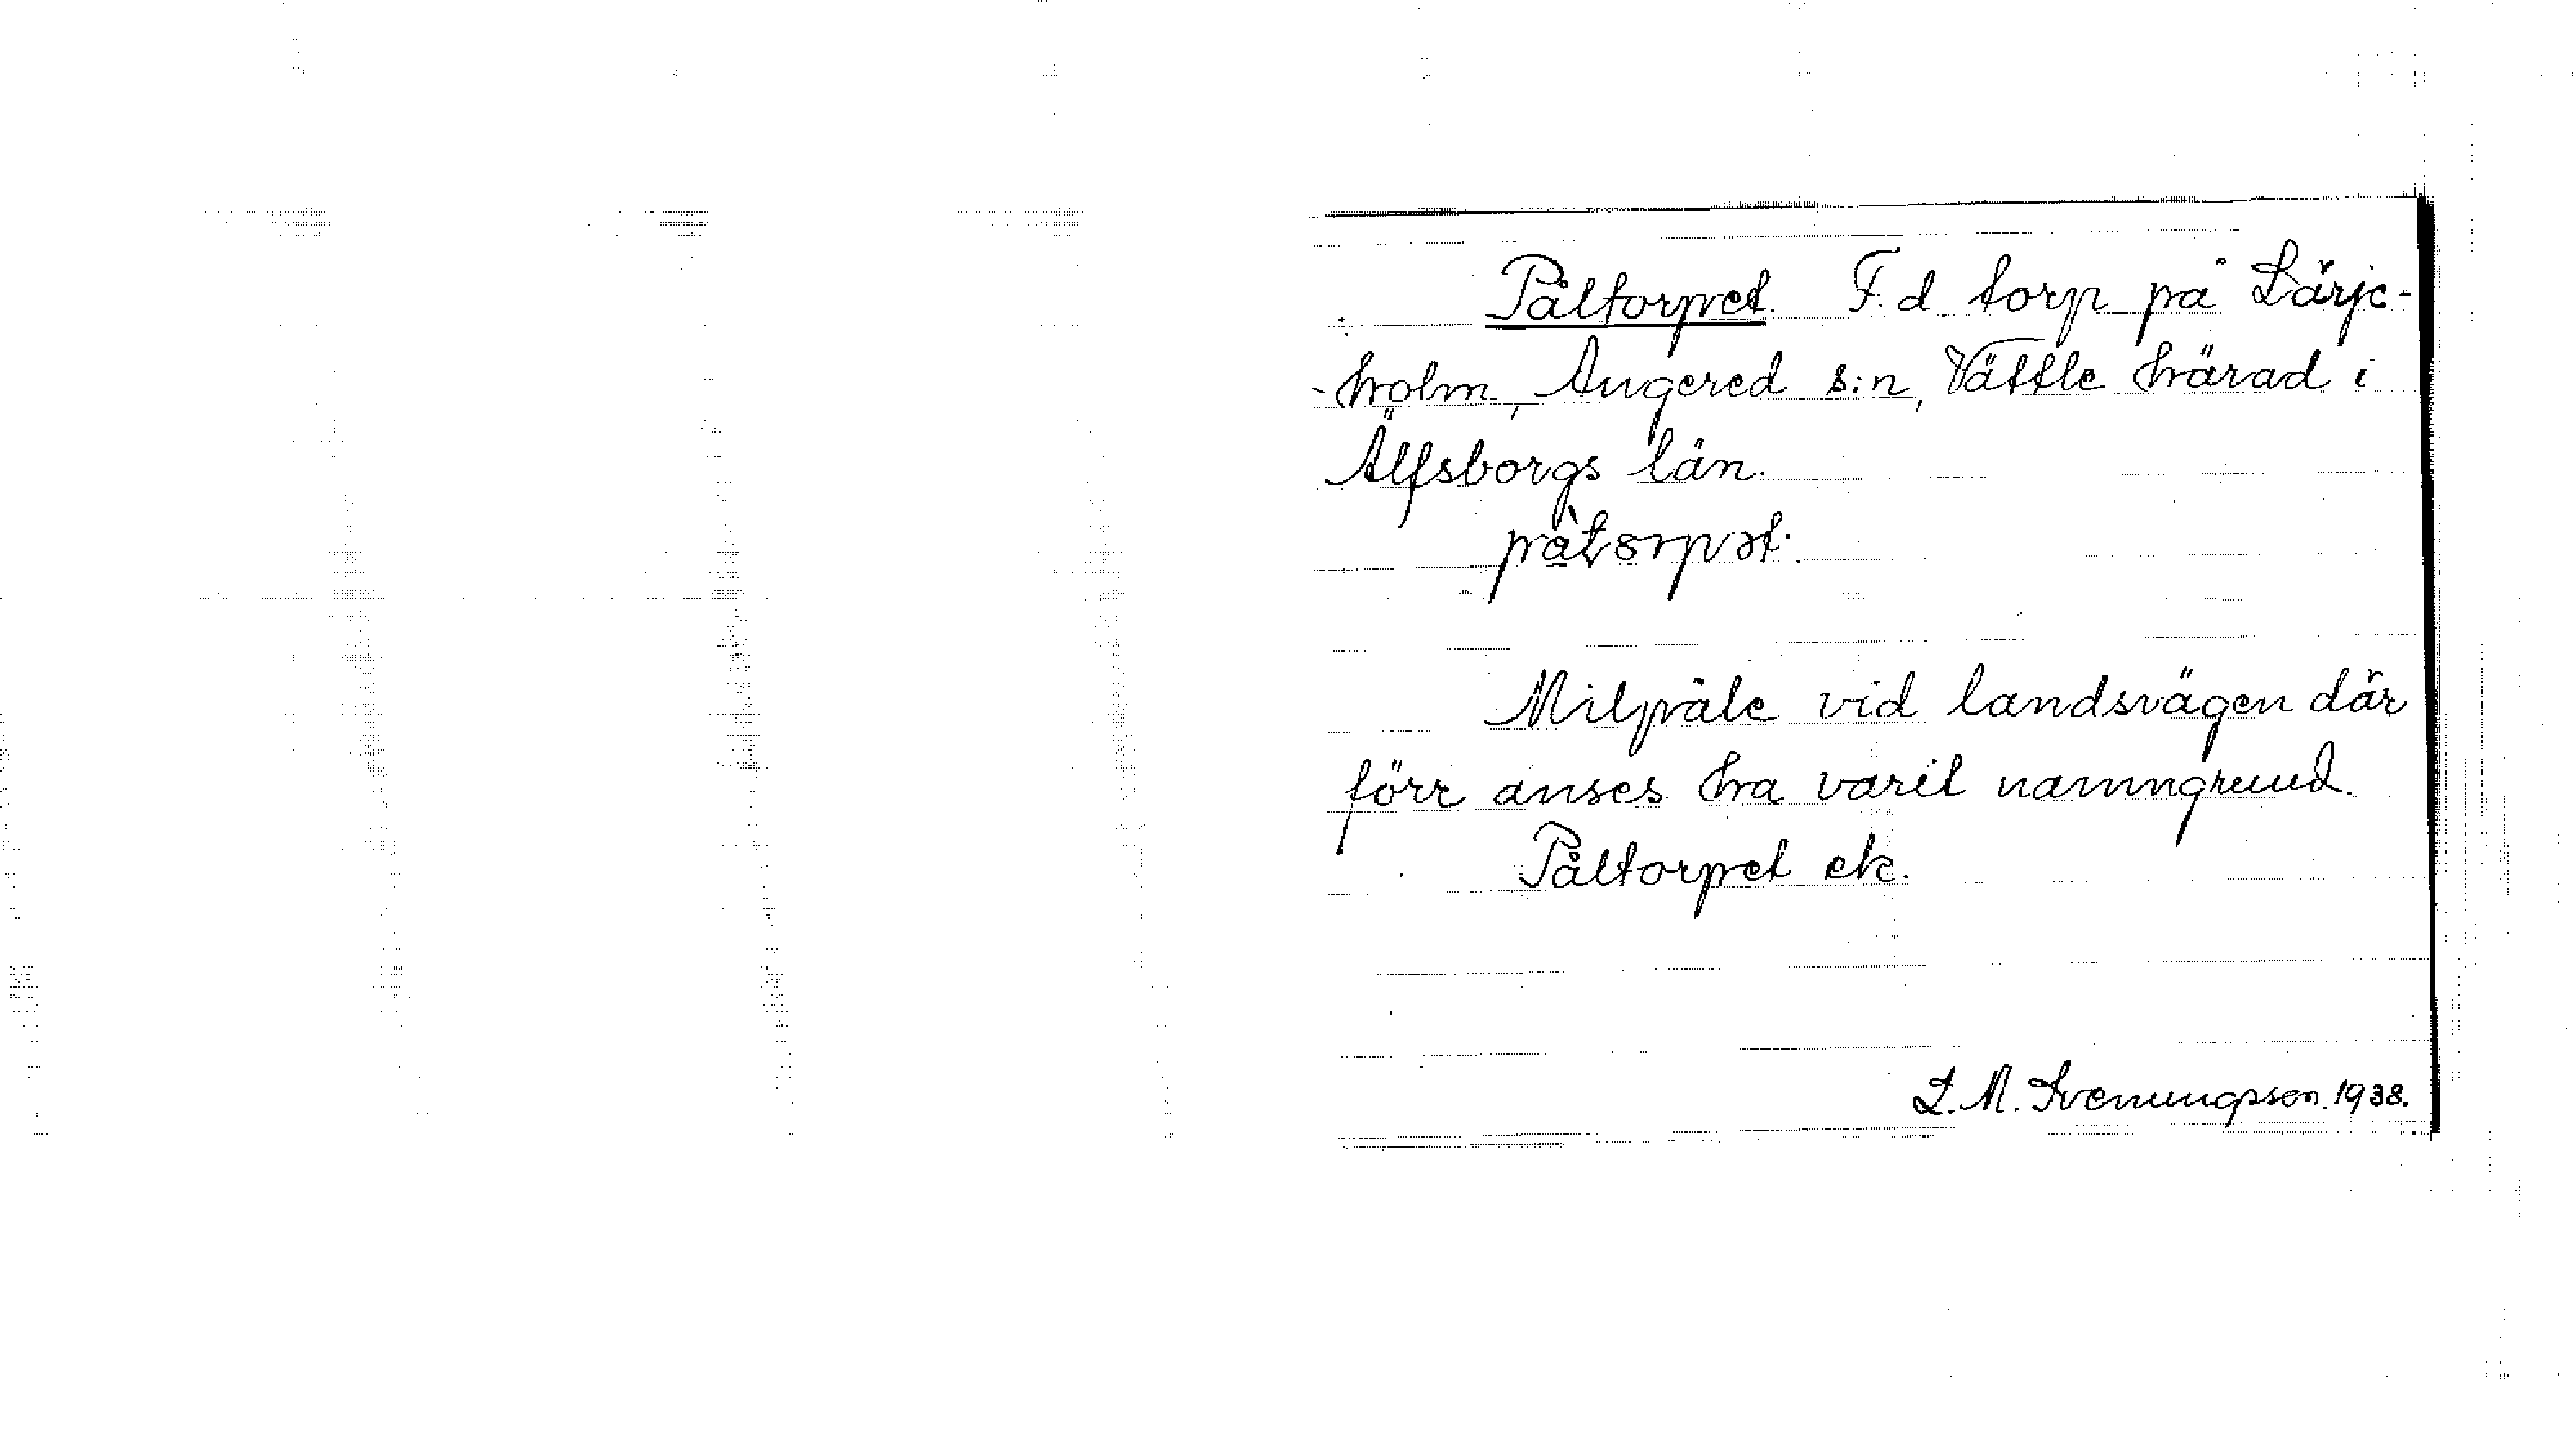 Påltorpet. F.d torp på Lärje-
-holm, Angered s:n, Vättle härad i
Älfsborgs län.
Milpåle vid landsvägen där
förr anses ha varit namngrund.
Påltorpet ek.
L. M. Svenungsson. 1938.